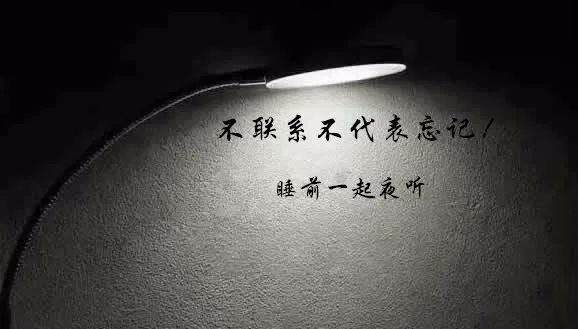 不联系不代表忘记！
睡前一起夜听